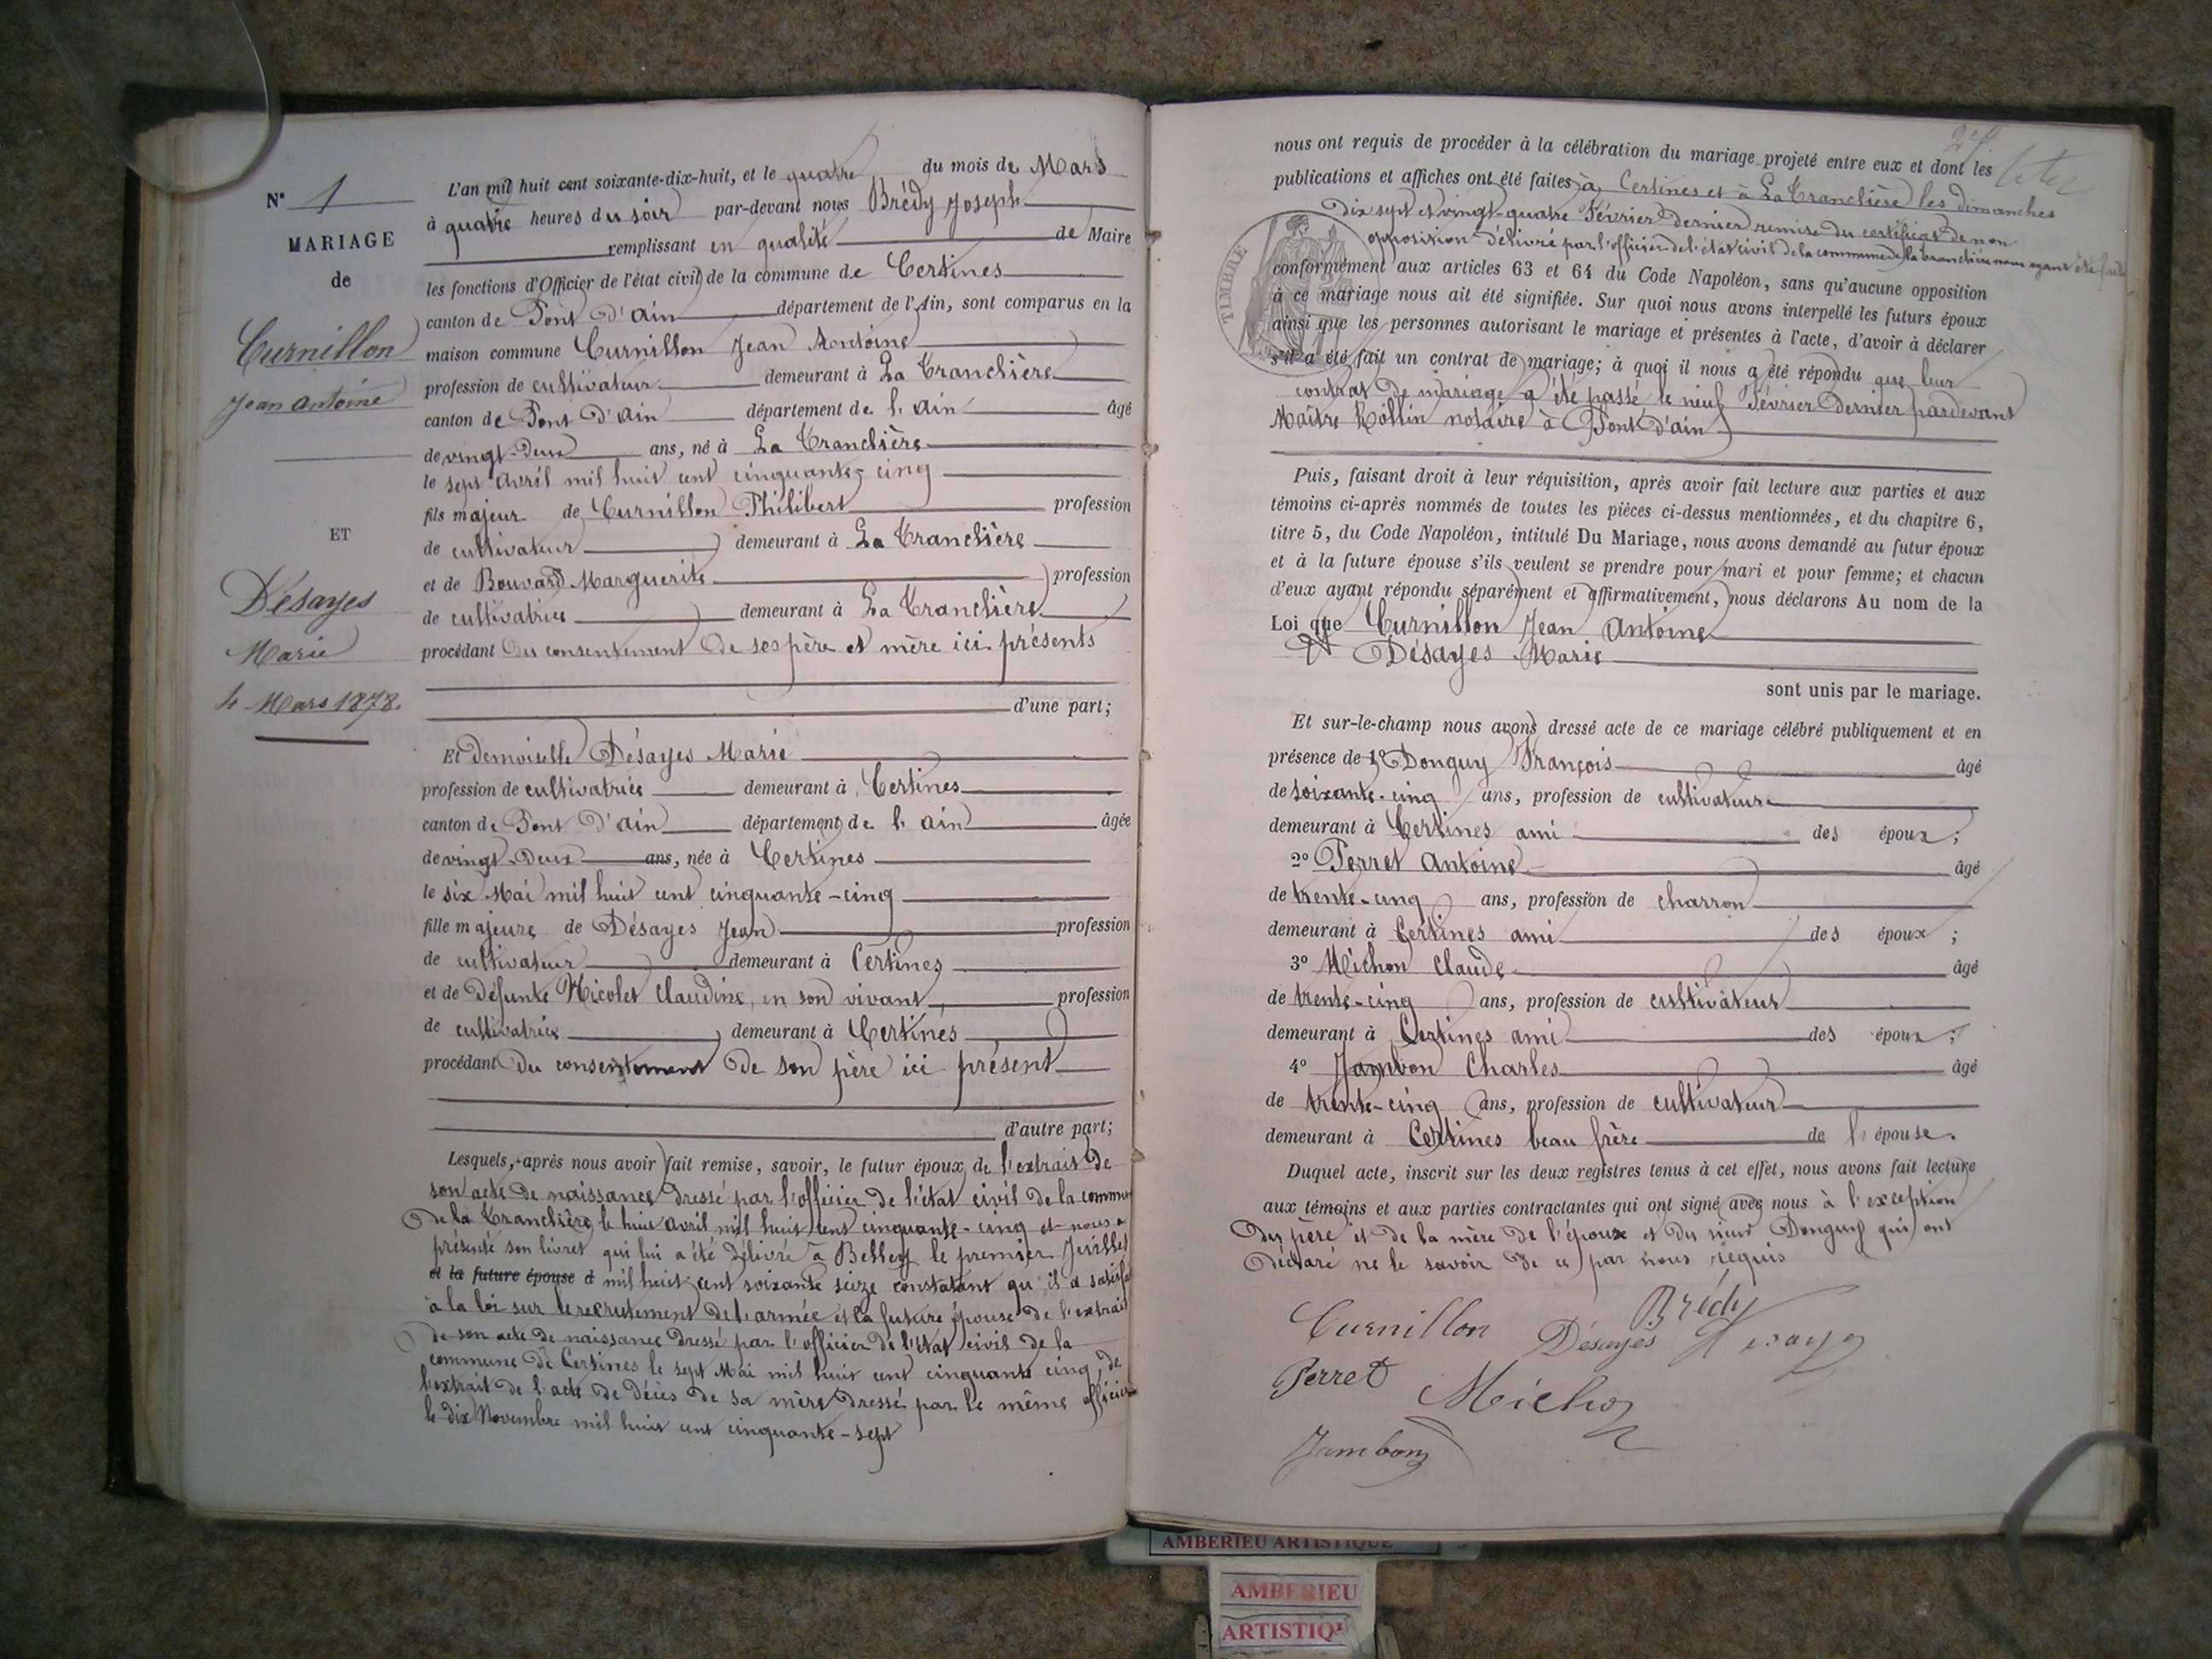 N° 1
MARIAGE
de
Curnillon
Jean Antoine
ET
Désayes
Marie
4 Mars 1878.
L'an mil huit cent soixante-dix-huit, et le quatre du mois de Mars
à quatre heures du soir par-devant nous Brédy Joseph
remplissant en qualité de Maire
les fonctions d'Officier de l'état civil de la commune de Certines
canton de Pont d'ain département de l'Ain, sont comparus en la
maison commune Curnillon Jean Antoine
profession de cultivateur demeurant à La Tranclière
canton de Pont d'ain département de l'ain âgé
de vingt-deux ans, né à La Tranclière
le sept avril mil huit cent cinquante-cinq
fils majeur de Curnillon Philibert profession
de cultivateur demeurant à La Tranclière
et de Bouvard Marguerite profession
de cultivatrice demeurant à La Tranclière
procédant du consentement de ses père et mère ici présents
d'une part;
Et demoiselle Désayes Marie
profession de cultivatrice demeurant à Certines
canton de Pont d'ain département de l'ain âgée
de vingt-deux ans, née à Certines
le six Mai mil huit cent cinquante-cinq
fille majeure de Désayes Jean profession
de cultivateur demeurant à Certines
et de défunte Nicolet Claudine, en son vivant profession
de cultivatrice demeurant à Certines
procédant du consentement de son père ici présent
d'autre part;
Lesquels, après nous avoir fait remise, savoir, le futur époux, de l'extrait de
son acte de naissance dressé par l'officier de l'état civil de la commune
de la Tranclière le huit avril mil huit cent cinquante-cinq et nous a
présenté son livret qui lui a été délivré à Belley le premier Juillet
et la future épouse d mil huit cent soixante seize constatant qu'il a satisfait
à la loi sur le recrutement de l'armée et la future épouse de l'extrait
de son acte de naissance dressé par l'officier de l'état civil de la
commune de Certines le sept Mai mil huit cent cinquante cinq, de
l'extrait de l'acte de décès de sa mère dressé par le même officier
le dix Novembre mil huit cent cinquante-sept
nous ont requis de procéder à la célébration du mariage projeté entre eux et dont les
publications et affiches ont été faites à Certines et à La Tranclière les dimanches
dix sept et vingt-quatre Février dernier remise du certificat de non
opposition délivré par l'officier de l'état civil de la commune de la Tranclière nous ayant été faite
TIMBRE
conformément aux articles 63 et 64 du Code Napoléon, sans qu'aucune opposition
à ce mariage nous ait été signifiée. Sur quoi nous avons interpellé les futurs époux
ainsi que les personnes autorisant le mariage et présentes à l'acte, d'avoir à déclarer
s'il a été fait un contrat de mariage; à quoi il nous a été répondu que leur
contrat de mariage a été passé le neuf Février dernier pardevant
Maître Rollin notaire à Pont d'ain
Puis, faisant droit à leur réquisition, après avoir fait lecture aux parties et aux
témoins ci-après nommés de toutes les pièces ci-dessus mentionnées, et du chapitre 6,
titre 5, du Code Napoléon, intitulé Du Mariage, nous avons demandé au futur époux
et à la future épouse s'ils veulent se prendre pour mari et pour femme; et chacun
d'eux ayant répondu séparément et affirmativement, nous déclarons Au nom de la
Loi que Curnillon Jean Antoine
Et Désayes Marie
sont unis par le mariage.
Et sur-le-champ nous avons dressé acte de ce mariage célébré publiquement et en
présence de 1° Donguy François âgé
de soixante-cinq ans, profession de cultivateur
demeurant à Certines ami des époux;
2° Perret Antoine âgé
de trente-cinq ans, profession de charron
demeurant à Certines ami des époux;
3° Michon Claude âgé
de trente-cinq ans, profession de cultivateur
demeurant à Certines ami des époux;
4° Jambon Charles âgé
de trente-cinq ans, profession de cultivateur
demeurant à Certines beau frère de l'épouse.
Duquel acte, inscrit sur les deux registres tenus à cet effet, nous avons fait lecture
aux témoins et aux parties contractantes qui ont signé avec nous à l'exception
du père et de la mère de l'époux et du sieur Donguy qui ont
déclaré ne le savoir de ce par nous requis
Curnillon Brédy
Désayes Desayes
Perret Michon
Jambon
AMBERIEU ARTISTIQUE
AMBERIEU
ARTISTIQ